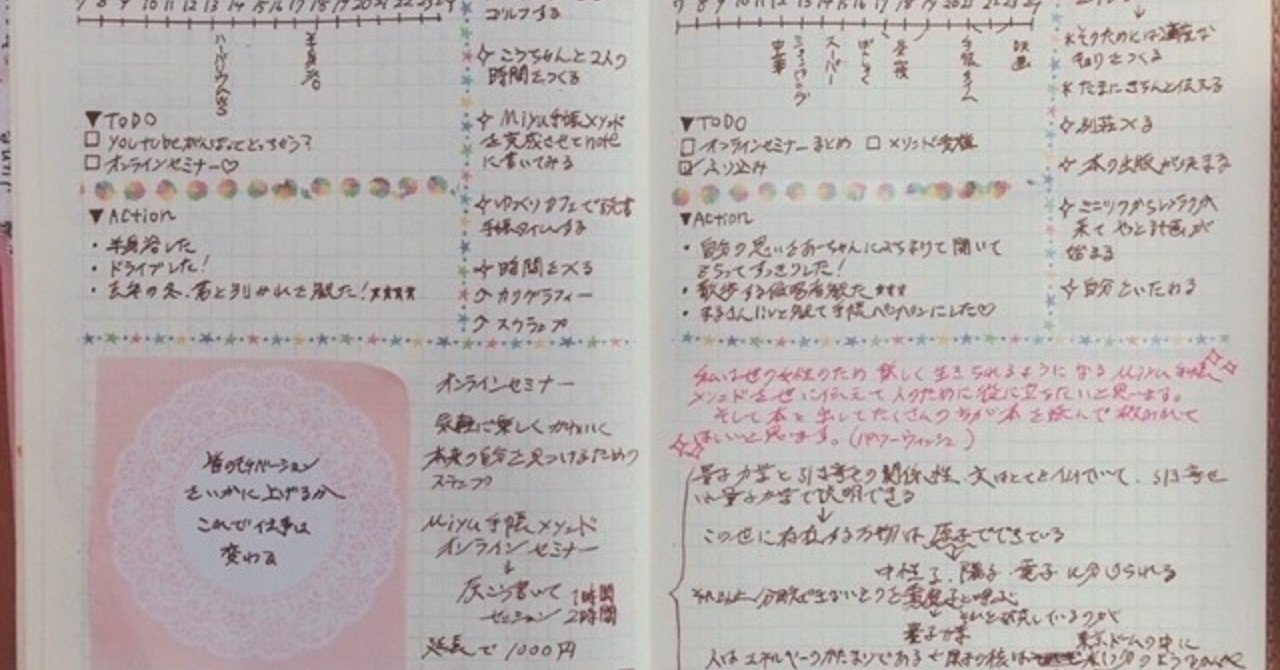 7 8 9 10 11 12 13 14 15 16 17 18 19 20 21 22 23 24
半身浴
▼TODO
□ YouTubeがんばってとっちゃう？
□ オンラインセミナー♡
▼Action
・半身浴した
・ドライブした！
ゴルフする
✧こうちゃんと2人の
時間をつくる
✧Miyu手帳メソッド
を完成させてnote
に書いてみる
✧ゆっくりカフェで読書
手帳タイムする
✧時間をつくる
↗カリグラフィー
↗スクラップ
皆のモチベーション
をいかに上げるか
これで仕事は
変わる
オンラインセミナー
気軽に楽しくかわいく
本来の自分を見つけるための
ステップ
Miyu手帳メソッド
オンラインセミナー
↓
書いて 1時間
セッション 2時間
延長で1000円
7 8 9 10 11 12 13 14 15 16 17 18 19 20 21 22 23 24
ショッピング
スーパー
手帳タイム
映画
▼TODO
□ オンラインセミナーまとめ □ メソッド
☑ ふり込み
▼Action
・自分の思いをあーちゃんにぶちまけて聞いて
もらってすっきりした！
・散歩する侵略者観た ★★★
↓
＊そのためには適度な
きょりをつくる
＊たまにきちんと伝える
✧別荘つくる
✧本の出版が決まる
✧ミニリクからレンラクが
来て やっと計画が
始まる
✧自分をいたわる
私は世の女性のため 楽しく生きられるようになる Miyu手帳
メソッドを世に伝えて人のために役に立ちたいと思います。
そして本を出してたくさんの方が本を読んで救われて
ほしいと思います。(パワーウィッシュ)
量子力学と引き寄せの関係性、文はとても似ていて、引き寄せ
は量子力学で説明できる
↓
この世に存在する万物は、原子でできている
中性子、陽子、電子に分けられる
量子力学
東京ドームの中に
人はエネルギーのかたまりである